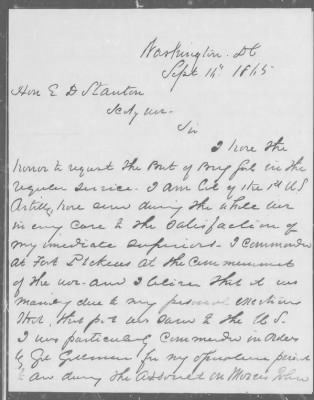 Washington. DC
Sept 14th 1865
Hon E D Stanton
Secty War.
Sir
I have the
honor to request the Bvt of Brig Genl in the
regular service. I am Col of the 1st U S
Artilly, have serv during the whole war
in every case to the satisfaction of
my imediate superiors. I commanded
at Fort Pickens at the commencement
of the war. and I believe that it was
mainly due to my personal exertions
that this post was save to the U.S.
I was particularly commended in orders
by Gen for my
during the assault on